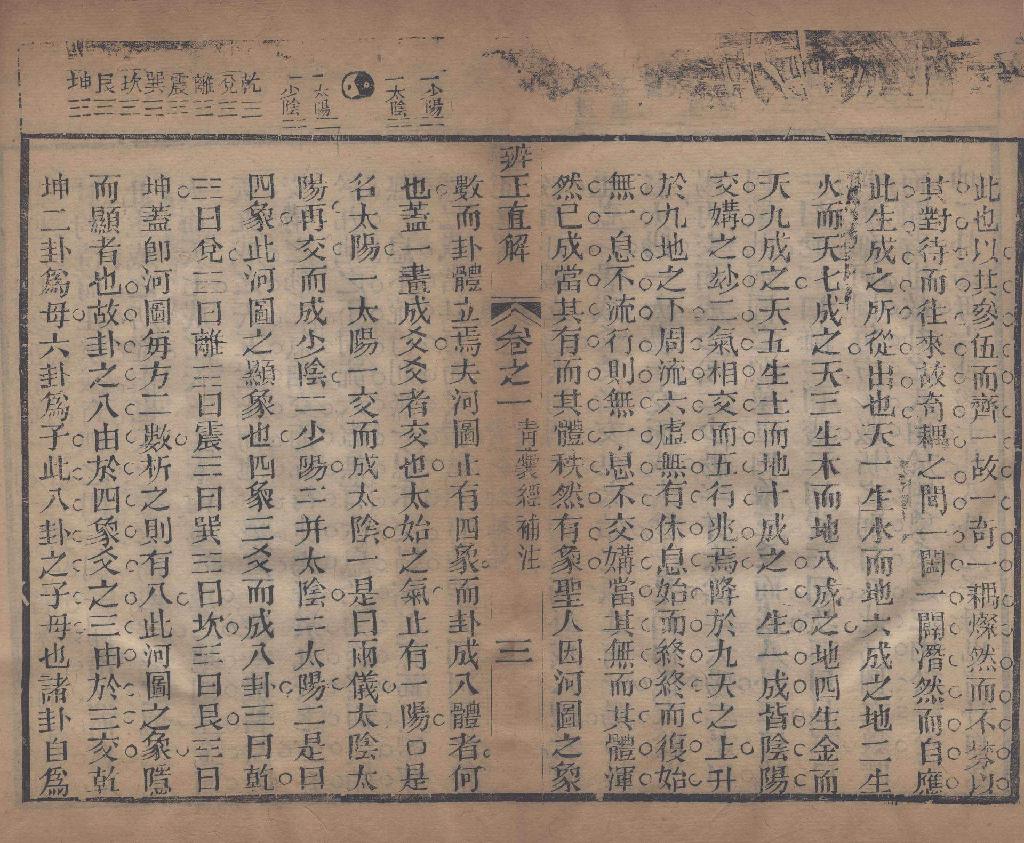 此也以其參伍而齊一故一奇一耦燦然而不棼以
其對待而往來故奇耦之間一闔一闢潛然而自應
此生成之所從出也天一生水而地六成之地二生
火而天七成之天三生木而地八成之地四生金而
天九成之天五生土而地十成之一生一成皆陰陽
交媾之玅二氣相交而五行兆焉降於九天之上升
於九地之下周流六虛無有休息始而終終而復始
無一息不流行則無一息不交媾當其無而其體渾
然已成當其有而其體秩然有象聖人因河圖之象
辨正直解 卷之一 青囊經補注 三
數而卦體立焉夫河圖止有四象而卦成八體者何
也蓋一畫成爻爻者交也太始之氣止有一陽口是
名太陽一太陽一交而成太陰一是曰兩儀太陰太
陽再交而成少陰二少陽二并太陰二太陽二是曰
四象此河圖之顯象也四象三爻而成八卦三曰乾
三曰兌三曰離三曰震三曰巽三曰坎三曰艮三曰
坤蓋卽河圖每方二數析之則有八此河圖之象隱
而顯者也故卦之八由於四象爻之三由於三交乾
坤二卦爲母六卦爲子此八卦之子母也諸卦自爲
一少陽二
一太陰二
一太陽二
一少陰二
乾三
兌三
離三
震三
巽三
坎三
艮三
坤三